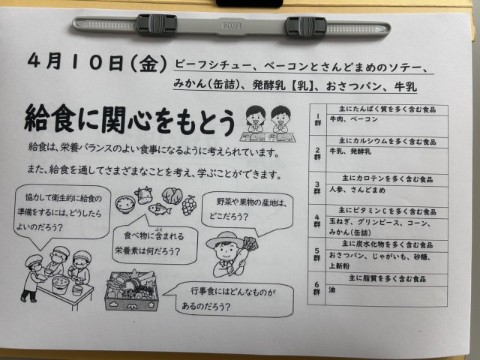 4月10日(金) ビーフシチュー、ベーコンとさんどまめのソテー、
みかん(缶詰)、発酵乳【乳】、おさつパン、牛乳
給食に関心をもとう
給食は、栄養バランスのよい食事になるように考えられています。
また、給食を通してさまざまなことを考え、学ぶことができます。
協力して衛生的に給食の
準備をするには、どうしたら
よいのだろう?
食べ物に含まれる
栄養素は何だろう?
野菜や果物の産地は、
どこだろう?
行事食にはどんなものが
あるのだろう?
1群
主にたんぱく質を多く含む食品
牛肉、ベーコン
2群
主にカルシウムを多く含む食品
牛乳、発酵乳
3群
主にカロテンを多く含む食品
人参、さんどまめ
4群
主にビタミンCを多く含む食品
玉ねぎ、グリンピース、コーン、
みかん(缶詰)
5群
主に炭水化物を多く含む食品
おさつパン、じゃがいも、砂糖、
上新粉
6群
主に脂質を多く含む食品
油